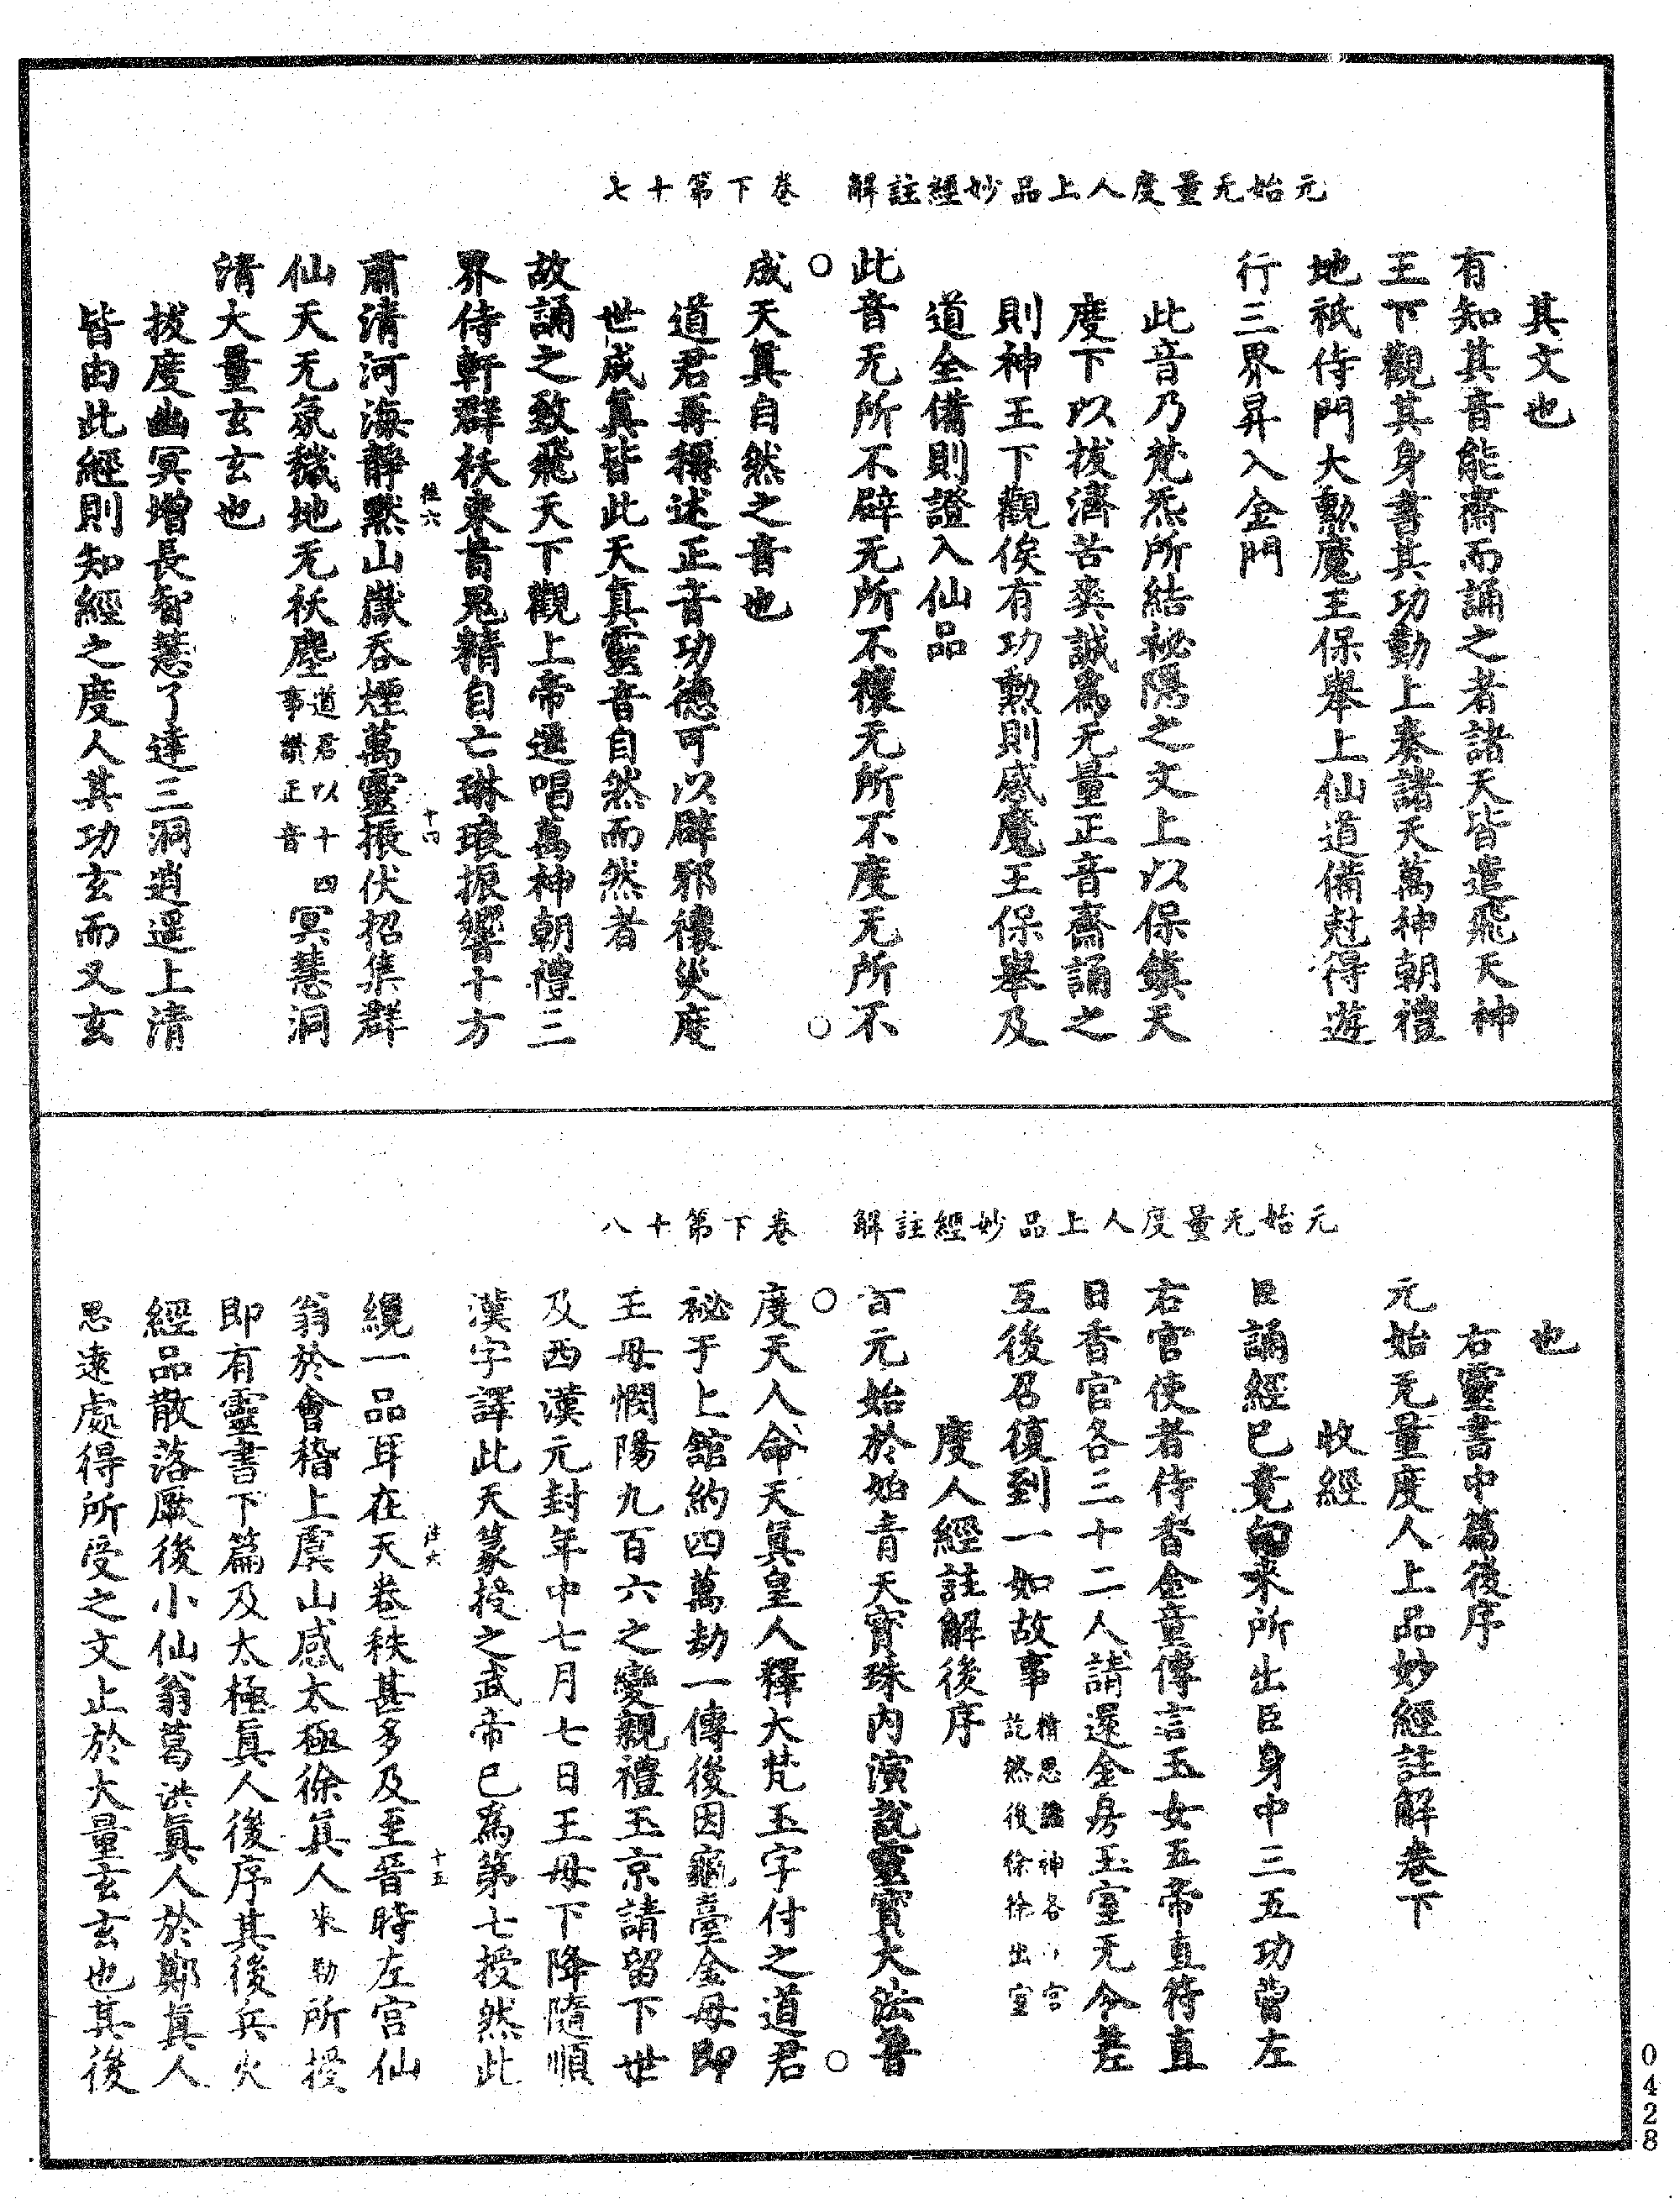 元始无量度人上品妙經註解　卷下第十七
其文也
有知其音能齋而誦之者諸天皆遣飛天神
王下觀其身書其功勤上奏諸天萬神朝禮
地祇侍門大勳魔王保舉上仙道備剋得遊
行三界昇入金門
此音乃梵炁所結祕隱之文上以保鎮天
度下以拔濟苦爽誠爲无量正音齋誦之
則神王下觀俟有功勳則感魔王保舉及
道全備則證入仙品
此音无所不辟无所不禳无所不度无所不
○　○
成天真自然之音也
道君再稱述正音功德可以辟邪禳災度
世成真皆此天真靈音自然而然者
故誦之致飛天下觀上帝遥唱萬神朝禮三
界侍軒群妖束首鬼精自亡琳琅振響十方
肅清河海靜默山嶽吞煙萬靈振伏招集群
仙天无氛穢地无袄塵道君以十四事讚正音冥慧洞
清大量玄玄也
拔度幽冥增長智慧了達三洞逍遥上清
皆由此經則知經之度人其功玄而又玄
元始无量度人上品妙經註解　卷下第十八
也
右靈書中篇後序
元始无量度人上品妙經註解卷下
收經
臣誦經已竟向來所出臣身中三五功曹左
右官使者侍香金童傳言玉女五帝直符直
日香官各三十二人請還金房玉室无令差
互後召復到一如故事精思神各宮訖然後徐徐出室
度人經註解後序
百元始於始青天寳珠内演說靈寳大法普
○　○
度天人命天真皇人釋大梵玉字付之道君
祕于上舘約四萬劫一傳後因龜臺金母即
王母憫陽九百六之變親禮玉京請留下世
及西漢元封年中七月七日王母下降隨順
漢字譯此天篆授之武帝已爲第七授然此
十四
十五
纔一品耳在天卷秩甚多及至晉時左宮仙
翁於會稽上虞山感太極徐真人來勒所授
即有靈書下篇及太極真人後序其後兵火
經品散落厥後小仙翁葛洪真人於鄭真人
思遠處得所受之文止於大量玄玄也其後
0428